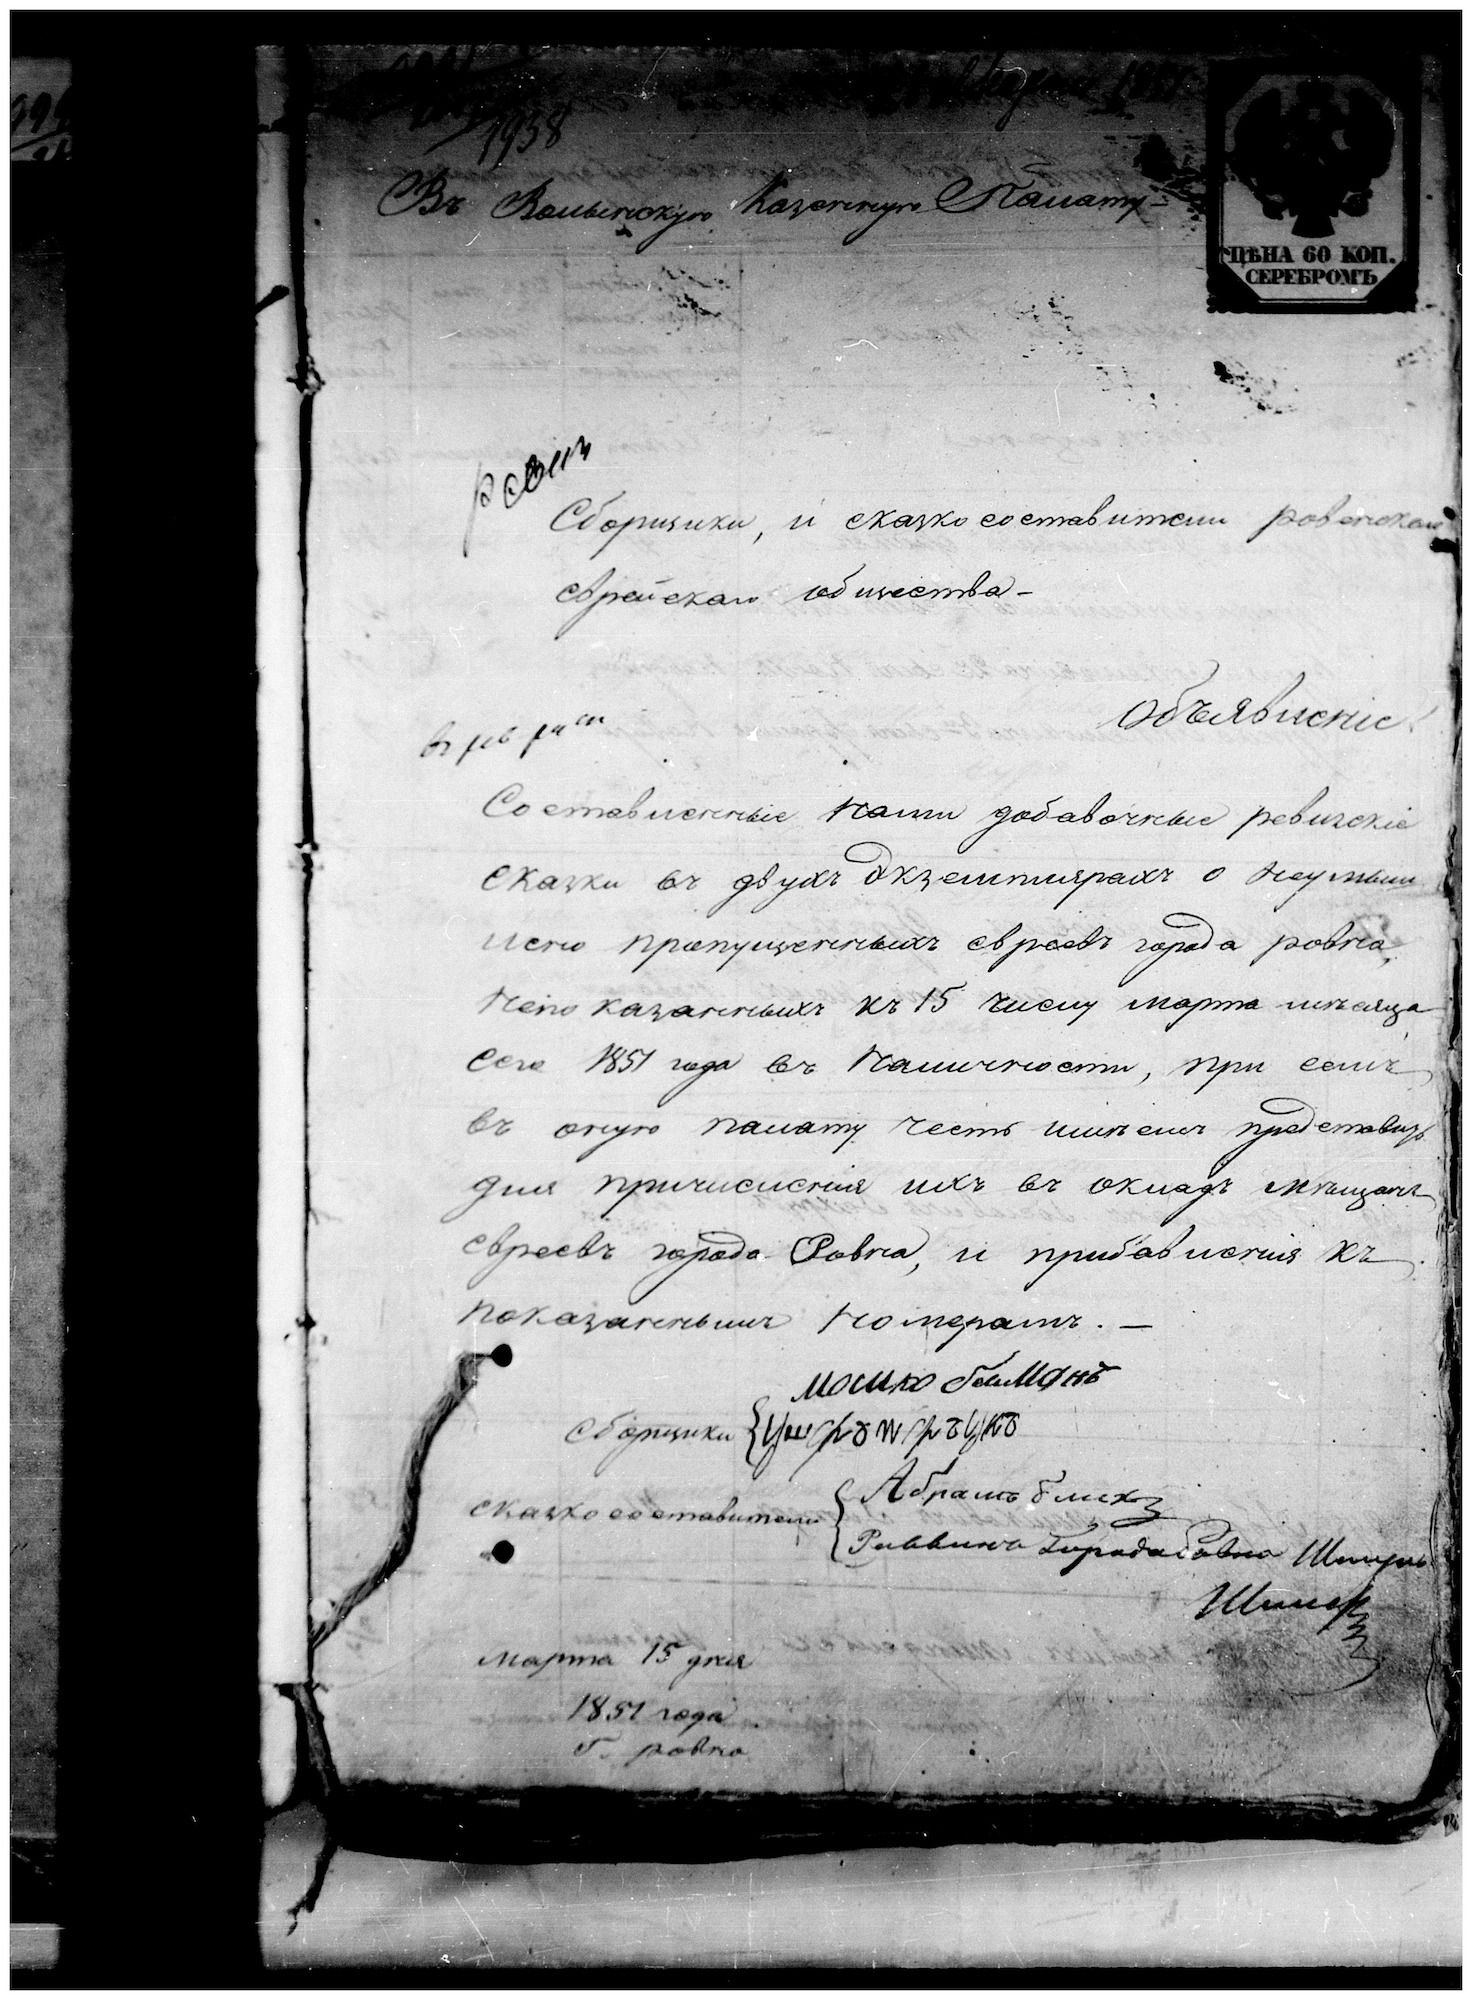 1958
Въ Волынскую Казенную Палату
ЦѢНА 60 КОП.
СЕРЕБРОМЪ
Сборщики, и сказкосоставители ровенскаго
еврейскаго общества-
Объявленіе
Составленные нами добавочные ревизскіе
сказки въ двухъ экземплярахъ о неумыш
ленно пропущенныхъ евреевъ города ровна,
непоказанныхъ къ 15 числу марта мѣсяца
сего 1851 года въ наличности, при семъ
въ оную палату честь имѣемъ представить
для причисленія ихъ въ окладъ мѣщанъ
евреевъ города Ровна, и прибавленія къ
показаннымъ номерамъ. —
мошко
сборщики
сказкосоставители
Абрамъ
Раввинъ Города Ровна Шмуль
марта 15 дня
1851 года
г. ровно